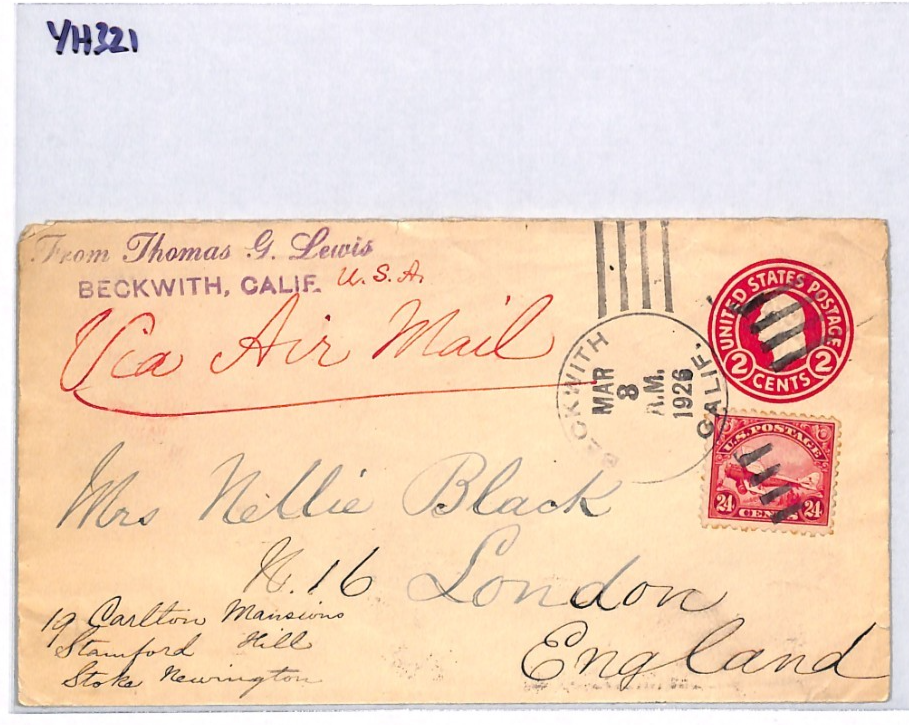 YH321
From Thomas G. Lewis
BECKWITH, CALIF. U.S.A.
Via Air Mail
BECKWITH CALIF.
MAR
8
A.M.
1926
UNITED STATES POSTAGE
2 CENTS 2
U.S. POSTAGE
24 CENTS 24
Mrs Nellie Black
N.16 London
England
19 Carlton Mansions
Stamford Hill
Stoke Newington